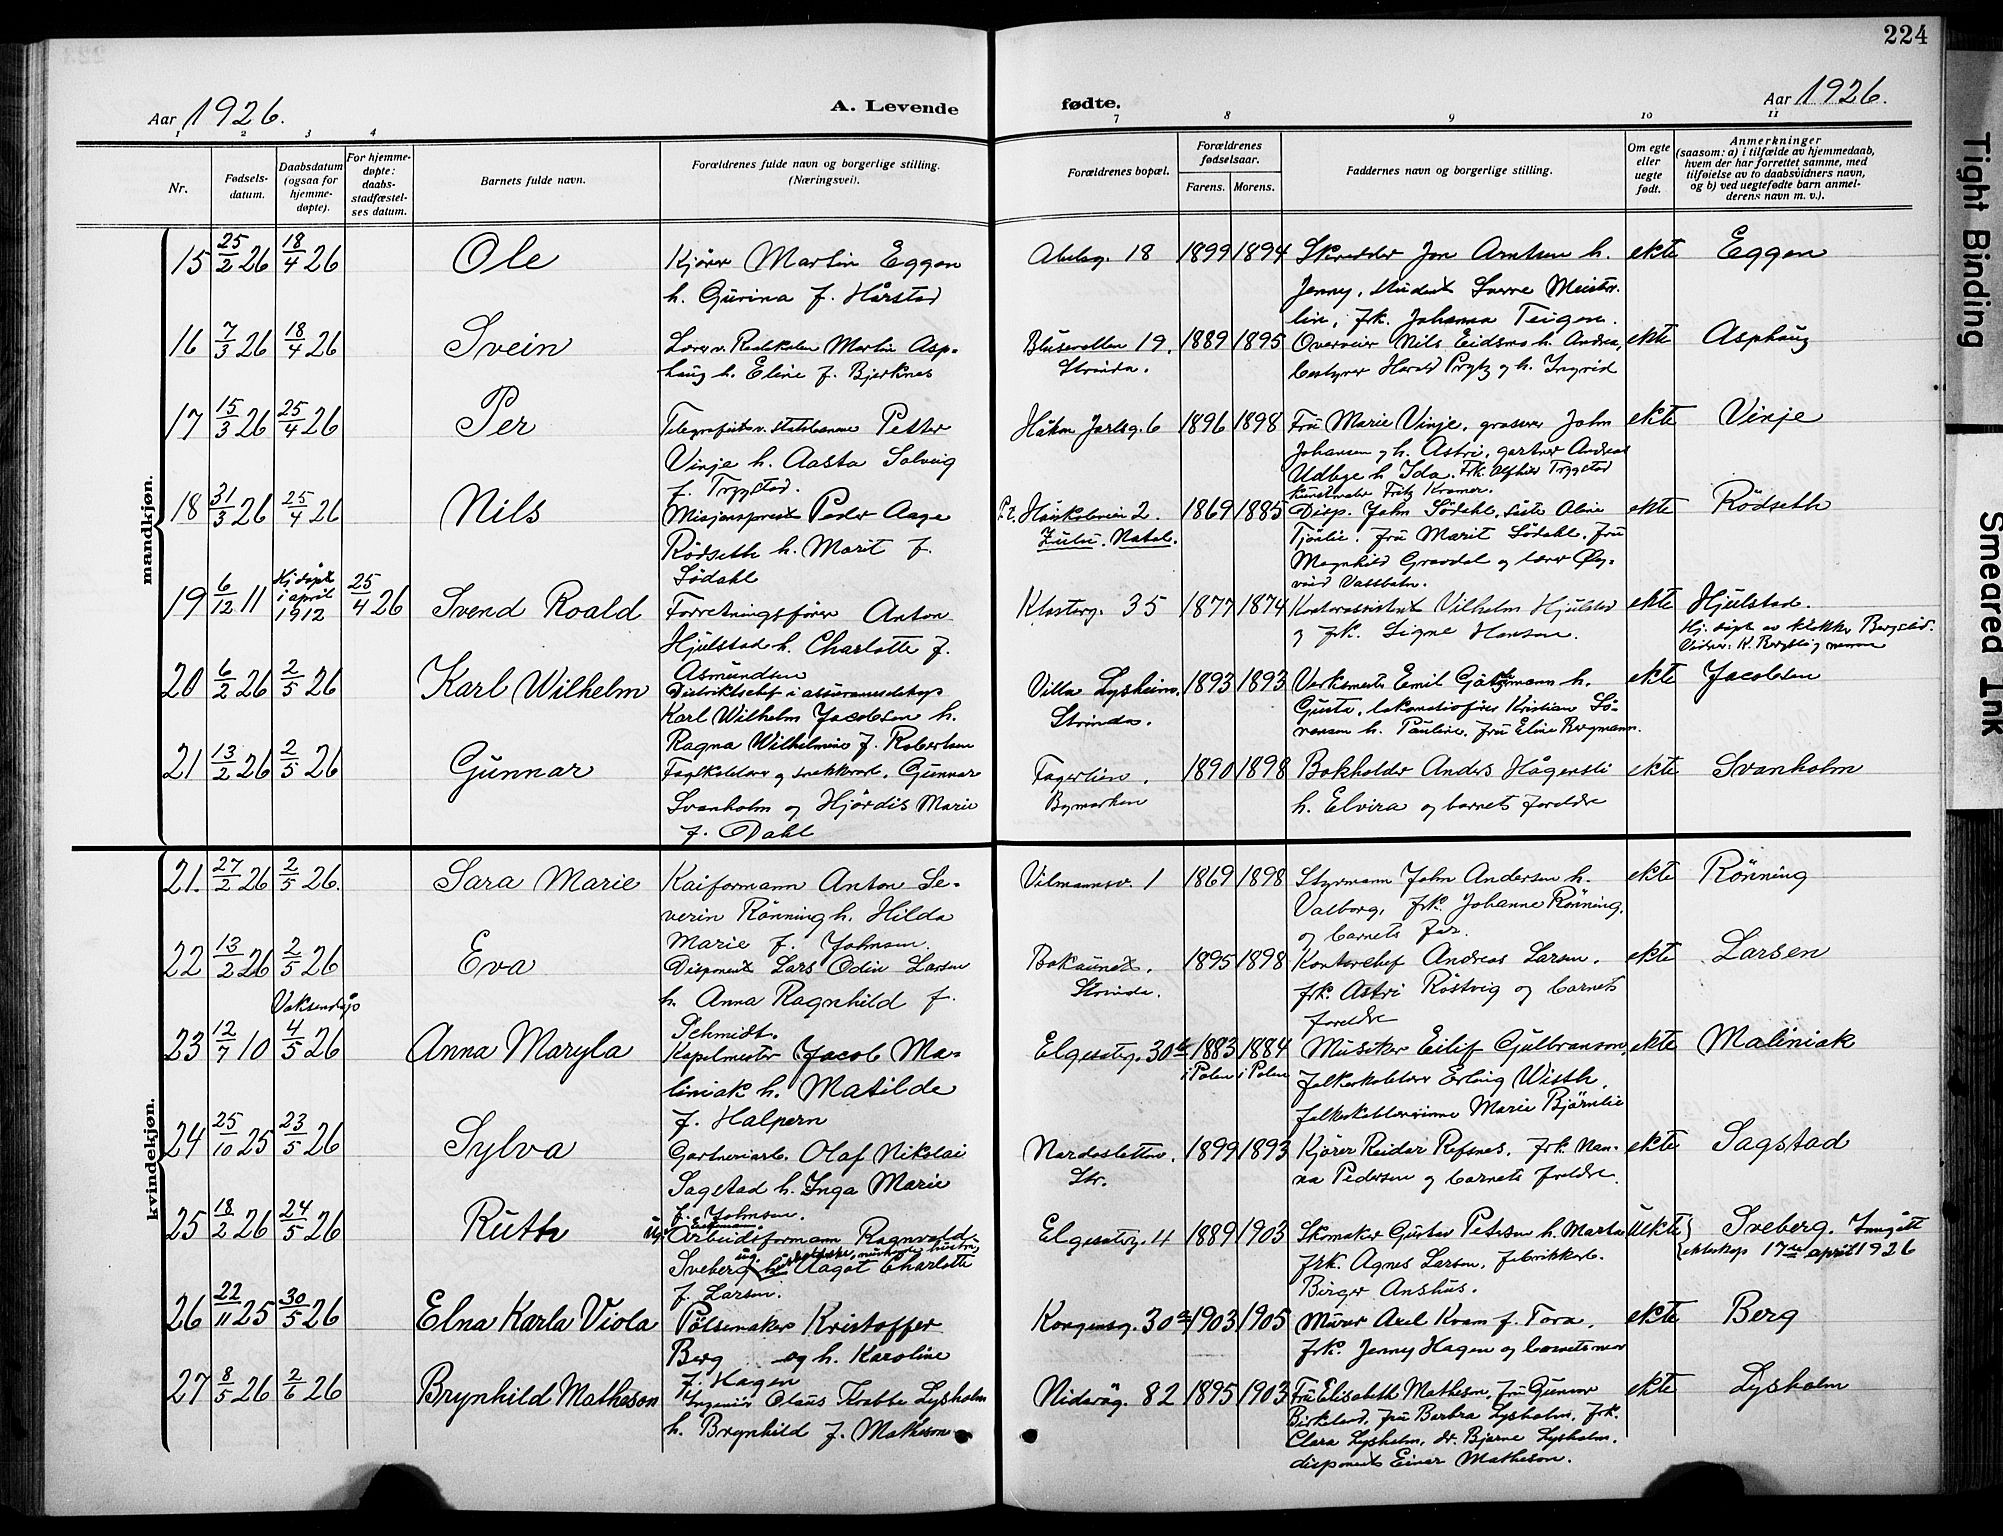 224
Aar 1926.
A. Levende fødte.
Aar 1926.
1 2 3 4 7 8 9 10 11
Nr.
Fødsels-
datum.
Daabsdatum
(ogsaa for
hjemme-
døpte).
For hjemme-
døpte:
daabs-
stadfæstel-
ses datum.
Barnets fulde navn.
Forældrenes fulde navn og borgerlige stilling.
(Næringsvei).
Forældrenes bopæl.
Forældrenes
fødselsaar.
Farens. Morens.
Faddernes navn og borgerlige stilling.
Om egte
eller
uegte
født.
Anmerkninger
(saasom: a) i tilfælde av hjemmedaab,
hvem der har forrettet samme, med
tilføielse av to daabsvidners navn,
og b) ved uegtefødte barn anmel-
derens navn m. v.).
mandkjøn.
15 25/2 26 18/4 26 Ole Kjører Martin Eggen Abelsg. 18 1899 1894 Skredder Jon Arntsen h. ekte Eggen
h. Gurina f. Hårstad Jenny, student Sverre Meister-
lin, frk. Johanna Teigen.
16 7/3 26 18/4 26 Svein Lærer v. Realskolen Martin Asp- 19. 1889 1895 Nils Eidsmo h. Andrea, ekte Asphaug
haug h. Eline f. Bjerknes Strinda. bestyrer Harald Prytz og h. Ingrid
17 15/3 26 25/4 26 Per Telegrafist v. statsbanene Petter Håkon Jarlsg. 6 1896 1898 Fru Marie Vinje, grosserer John ekte Vinje
Vinje h. Aasta Solveig Johansen og h. Astri, gartner Andreas
f. Trygstad. Udbye h Ida. Frk. Trygstad
kunstmaler Fritz Kramer.
18 31/3 26 25/4 26 Nils Misjonsprest Peder Aage P.t. 2. 1869 1885 Disp. John Södahl, Aline ekte Rödseth
Rödseth h. Marit f. Zulu. Natal. fru Marit Södahl. fru
Södahl Magnhild Gravdal og lærer Øy-
vind Vassbotn.
19 6/12 11 Hj. døpt i april 1912 25/4 26 Svend Roald Forretningsfører Anton Klosterg. 35 1877 1874 Kontorassistent Vilhelm Hjulstad ekte Hjulstad.
Hjulstad h. Charlotte f. og frk. Signe Hansen. Hj. døpt av klokker
Asmundsen
20 6/2 26 2/5 26 Karl Wilhelm Distriktschef i assuranseselskap Villa Lysheim. 1893 1893 Verksmester Emil h. ekte Jacobsen
Karl Wilhelm Jacobsen h. Strinda. Gusta, lokomotivfører Kristian Sö-
Ragna Wilhelmine f. Robertsen rensen h. Pauline, fru Eline Bergmann.
21 13/2 26 2/5 26 Gunnar Gunnar Fagerlien. 1890 1898 Bokholder Anders Hågensli ekte Svanholm
Svanholm og Hjördis Marie Bymarken h. Elvira og barnets foreldre
f. Dahl
kvindekjøn.
21. 27/2 26 2/5 26. Sara Marie Kaiformann Anton Se- Vilmannsv. 1 1869 1898 Styrmann John Andersen h. ekte Rönning
verin Rönning h. Hilda Valborg, frk. Johanne Rönning,
Marie f. Johnsen. og barnets far.
22 13/2 26 2/5 26 Eva Disponent Lars Odin Larsen Bakaunet. 1895 1898 Kontorchef Andreas Larsen. ekte Larsen
h. Anna Ragnhild f. Strinda. frk. Astri Röstvig og barnets
Schmidt. foreldre
23 12/7 10 Voksendåp 4/5 26 Anna Maryla Kapelmester Jacob Ma- Elgesæterg. 30 b 1883 i Polen 1884 i Polen Musiker Eilif Gulbranson, ekte Maliniak
liniak h. Matilde folkeskolelærer Erling Wisth,
f. Halpern folkeskolelærerinne Marie Björnlie
24 25/10 25 23/5 26 Sylva Gartneriarb. Olaf Nikolai Nardosletten. 1899 1893 Kjører Reidar Refsnes. frk. Nan- ekte Sagstad
Sagstad h. Inga Marie Str. na Pedersen og barnets foreldre.
f. Johnsen.
25 18/2 26 24/5 26 Ruth Arbeidsformann Ragnvald Elgesæterg. 4 1889 1903 Skomaker Gustav Petersen h. Marta Uekte Sveberg. Inngått
Sveberg Aagot Charlotte frk. Agnes Larsen, fabrikkarb. ekteskap 17de april 1926
f. Larsen. Birger Anshus.
26 22/11 25 30/5 26 Elna Karla Viola Pölsemaker Kristoffer Korgensg. 30 1903 1905 Murer Axel Kvam f. Tora, ekte Berg
Berg og h. Karoline frk. Jenny Hagen og barnets mor
f. Hagen
27 8/5 26 2/6 26 Brynhild Matheson Ingeniør Olaus Krabbe Lysholm Nidarög. 82 1895 1903 Fru Elisabeth Matheson, fru Gunvor ekte Lysholm
h. Brynhild f. Matheson Birkeland, fru Barbra Lysholm, frk.
Clara Lysholm, dr. Bjarne Lysholm.
disponent Einar Matheson.
Tight Binding
Smeared Ink